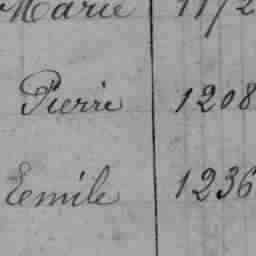 Marie 1172
Pierre 1208
Eemile 1236